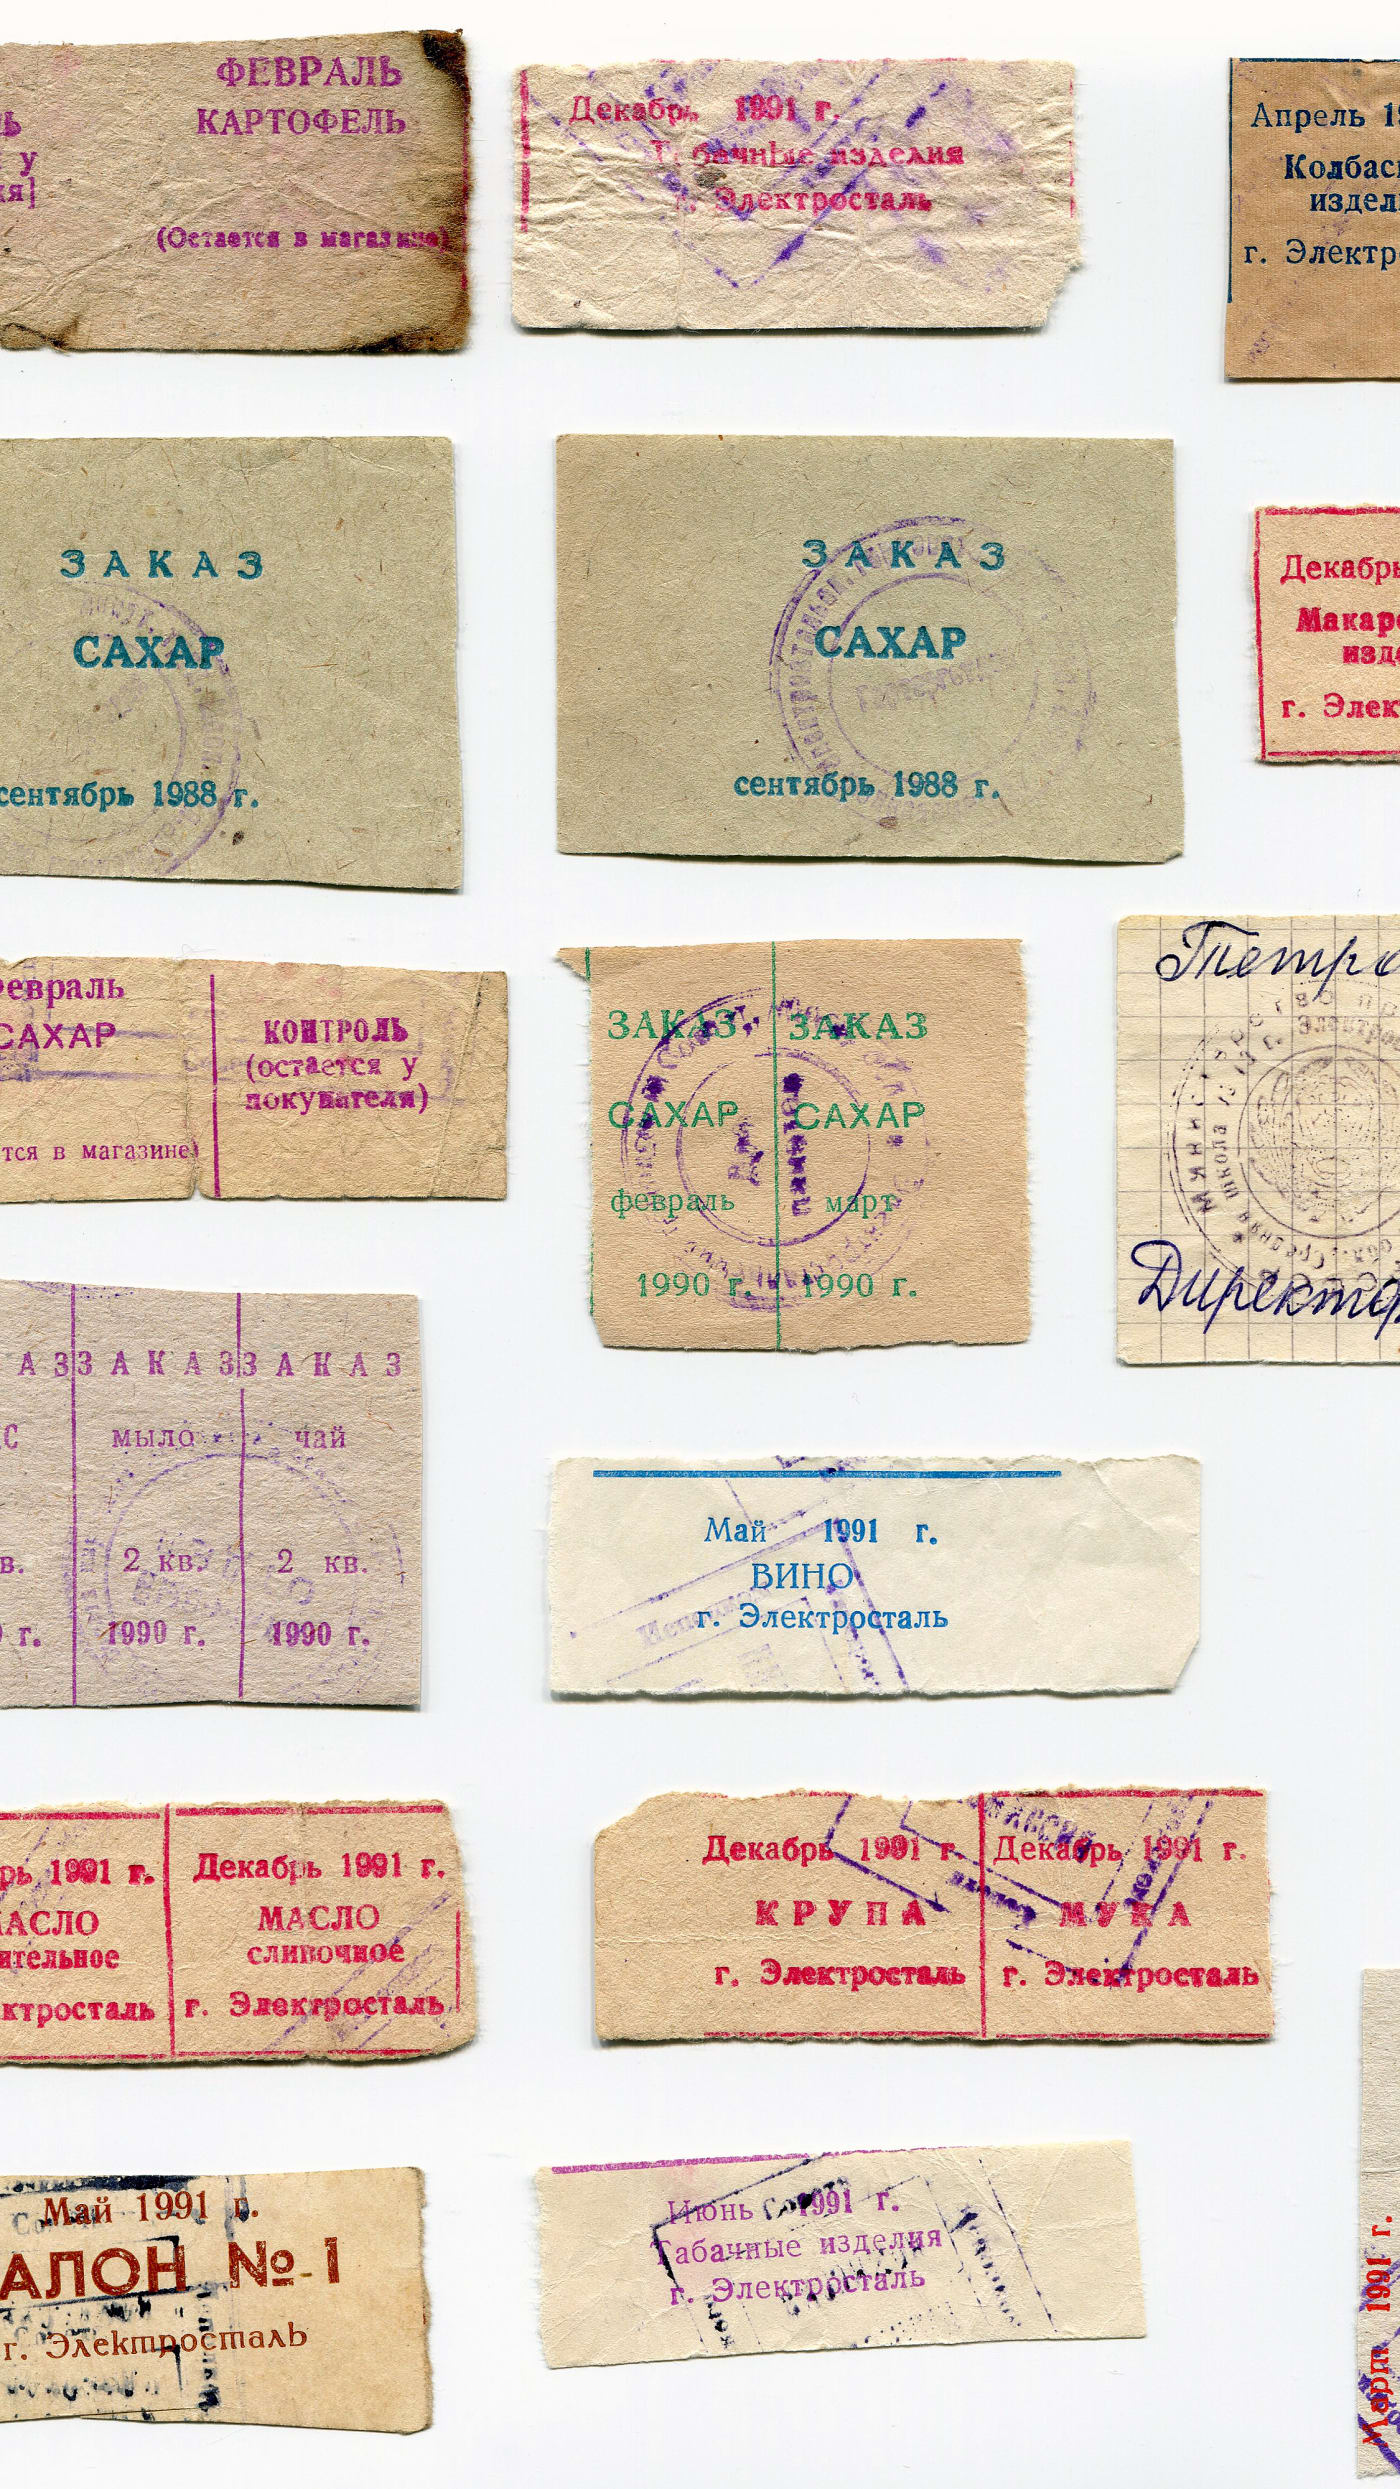 ФЕВРАЛЬ
КАРТОФЕЛЬ
у
(Остается в магазине)
Декабрь 1991 г.
Табачные изделия
г. Электросталь
Апрель
Колбас
издел
г. Электр
ЗАКАЗ
САХАР
сентябрь 1988 г.
ЗАКАЗ
САХАР
сентябрь 1988 г.
Декабрь
Макар
изд
г. Элек
Февраль
САХАР
тся в магазине)
КОНТРОЛЬ
(остается у
покупателя)
ЗАКАЗ
САХАР
февраль
1990 г.
ЗАКАЗ
САХАР
март
1990 г.
Тетра
Директор
АЗ
С
в.
г.
ЗАКАЗ
мыло
2 кв.
1990 г.
ЗАКАЗ
чай
2 кв.
1990 г.
Май 1991 г.
ВИНО
г. Электросталь
рь 1991 г.
МАСЛО
ительное
ктросталь
Декабрь 1991 г.
МАСЛО
сливочное
г. Электросталь
Декабрь 1991 г.
КРУПА
г. Электросталь
Декабрь 1991 г.
МУКА
г. Электросталь
Май 1991 г.
АЛОН № 1
г. Электросталь
Июнь 1991 г.
Табачные изделия
г. Электросталь
Март 1991 г.